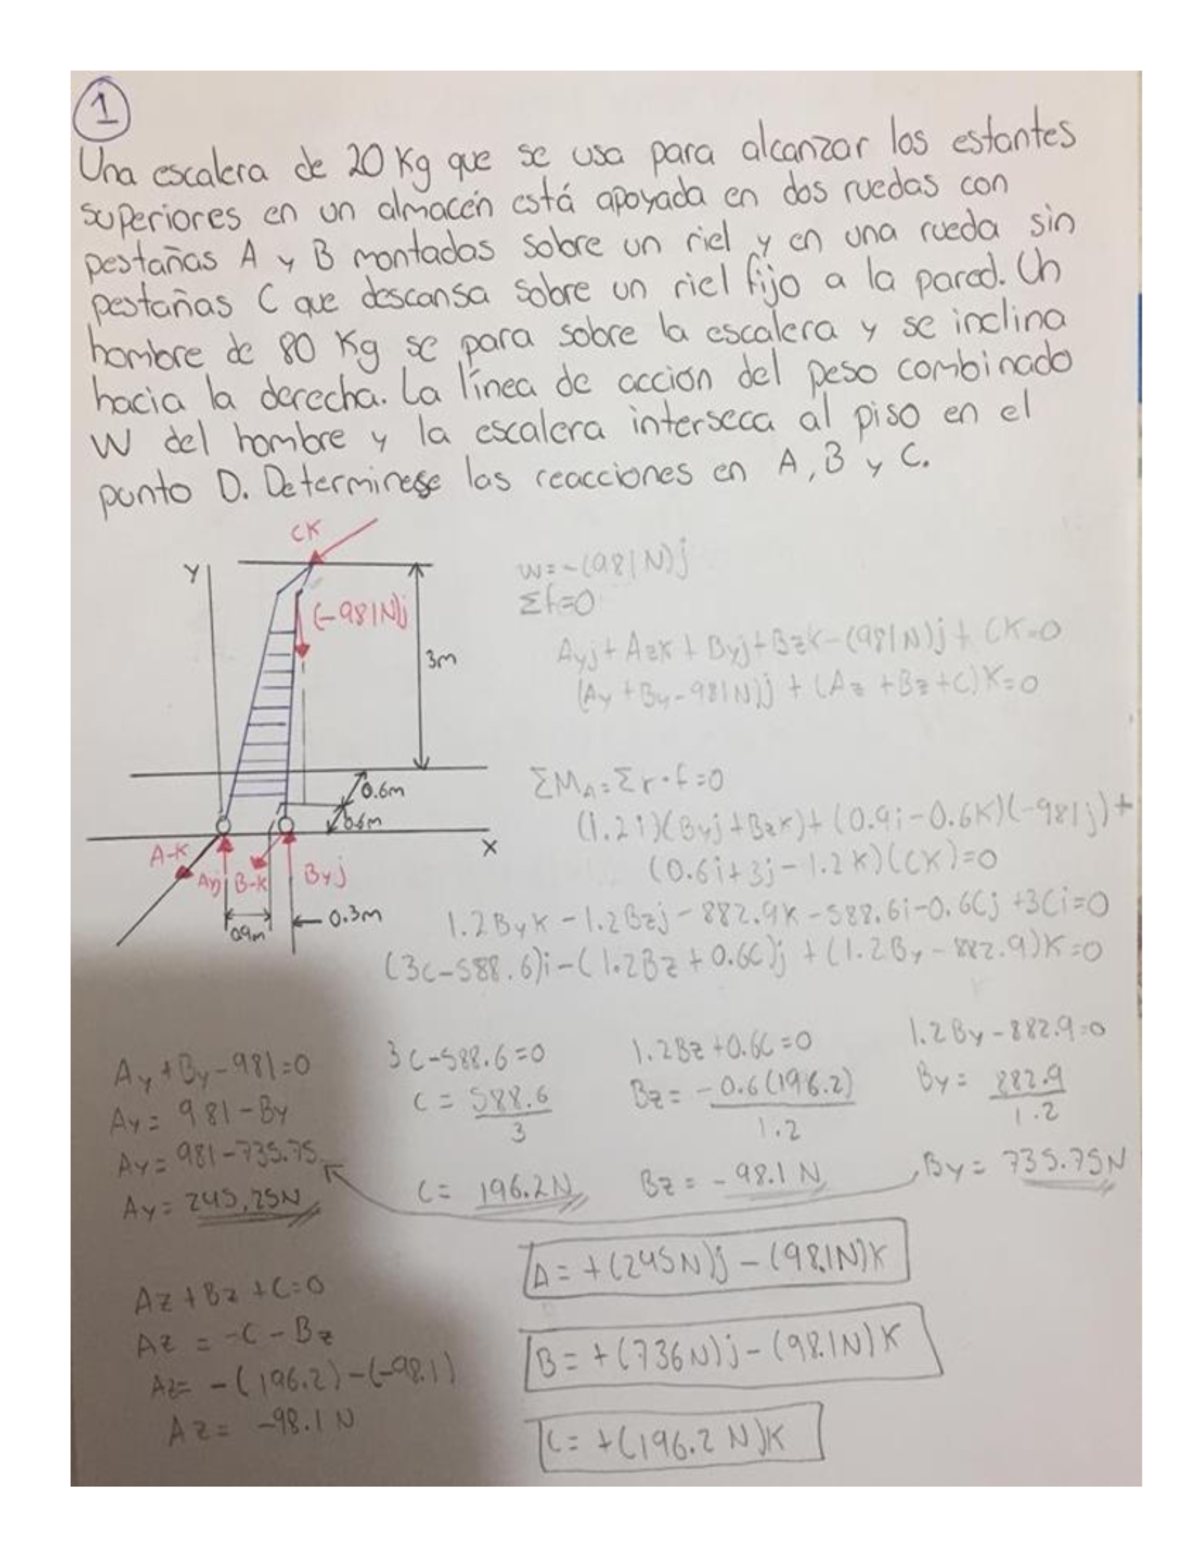 1
Una escalera de 20 Kg que se usa para alcanzar los estantes
superiores en un almacén está apoyada en dos ruedas con
pestañas A y B montadas sobre un riel y en una rueda sin
pestañas C que descansa sobre un riel fijo a la pared. Un
hombre de 80 Kg se para sobre la escalera y se inclina
hacia la derecha. La línea de acción del peso combinado
W del hombre y la escalera interseca al piso en el
punto D. Determinese las reacciones en A, B y C.
CK
Y
(-981N)j
3m
0.6m
0.6m
X
A-K
Ayj
B-K
Byj
0.9m
0.3m
W=-(981N)j
Σf=0
Ayj+AzK+Byj+BzK-(981N)j+CK=0
(Ay+By-981N)j+(Az+Bz+C)K=0
ΣMA=Σr·f=0
(1.2i)(Byj+BzK)+(0.9i-0.6K)(-981j)+
(0.6i+3j-1.2K)(CK)=0
1.2ByK-1.2Bzj-882.9K-588.6i-0.6Cj+3Ci=0
(3C-588.6)i-(1.2Bz+0.6C)j+(1.2By-882.9)K=0
Ay+By-981=0
Ay=981-By
Ay=981-735.75
Ay=245,25N
3C-588.6=0
C=588.6
3
C=196.2N
1.2Bz+0.6C=0
Bz=-0.6(196.2)
1.2
Bz=-98.1N
1.2By-882.9=0
By=882.9
1.2
By=735.75N
Az+Bz+C=0
Az=-C-Bz
Az=-(196.2)-(-98.1)
Az=-98.1N
A=+(245N)j-(98.1N)K
B=+(736N)j-(98.1N)K
C=+(196.2N)K